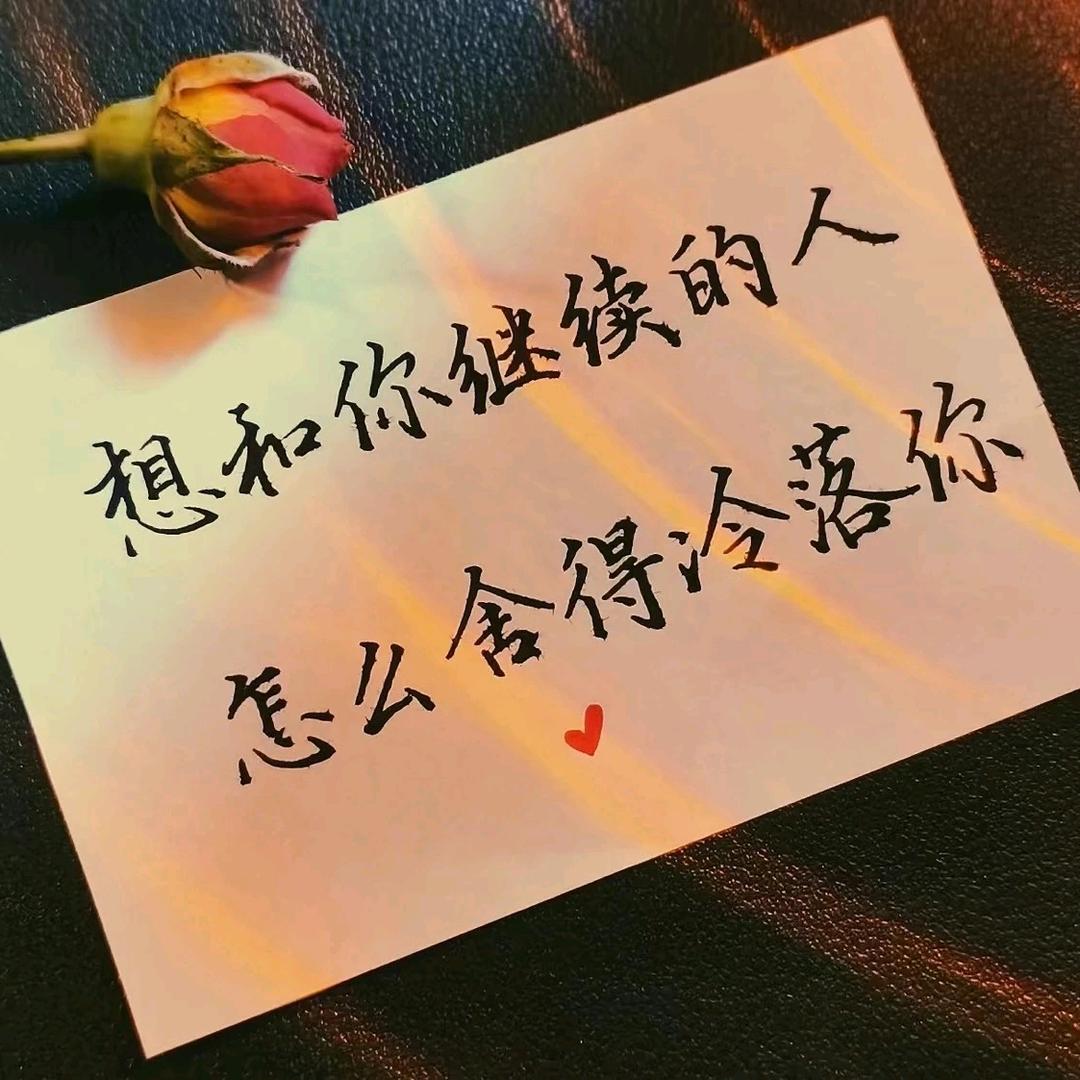 想和你继续的人
怎么舍得冷落你